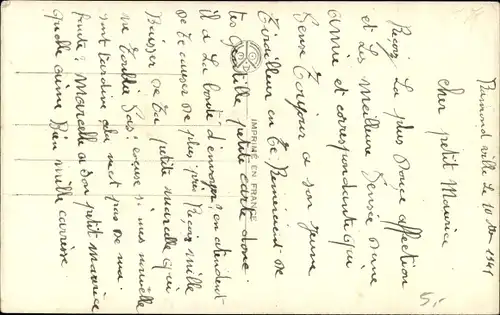 Ramond ville le 10 1941
cher petit Maurice
Reçoi La plus Douce affection
et Les Meilleure Pensée d'une
amie et correspondante qui
Pense Toujour a son jeune
Tirailleur en Te Remerciant de
tes Gentille petite carte donc
il a La bonté d'envoyer? en atendent
de Te causer de plus près Reçoi mille
Baisser de Ta petite Marcelle qui
ne T'oublie Pas! excuse si mes nouvelle
sont tardive cela n'est pas de ma
faute? Marcelle a son petit Maurice
quelle aime Bien mille carresse.
IMPRIMÉ EN FRANCE
5.-